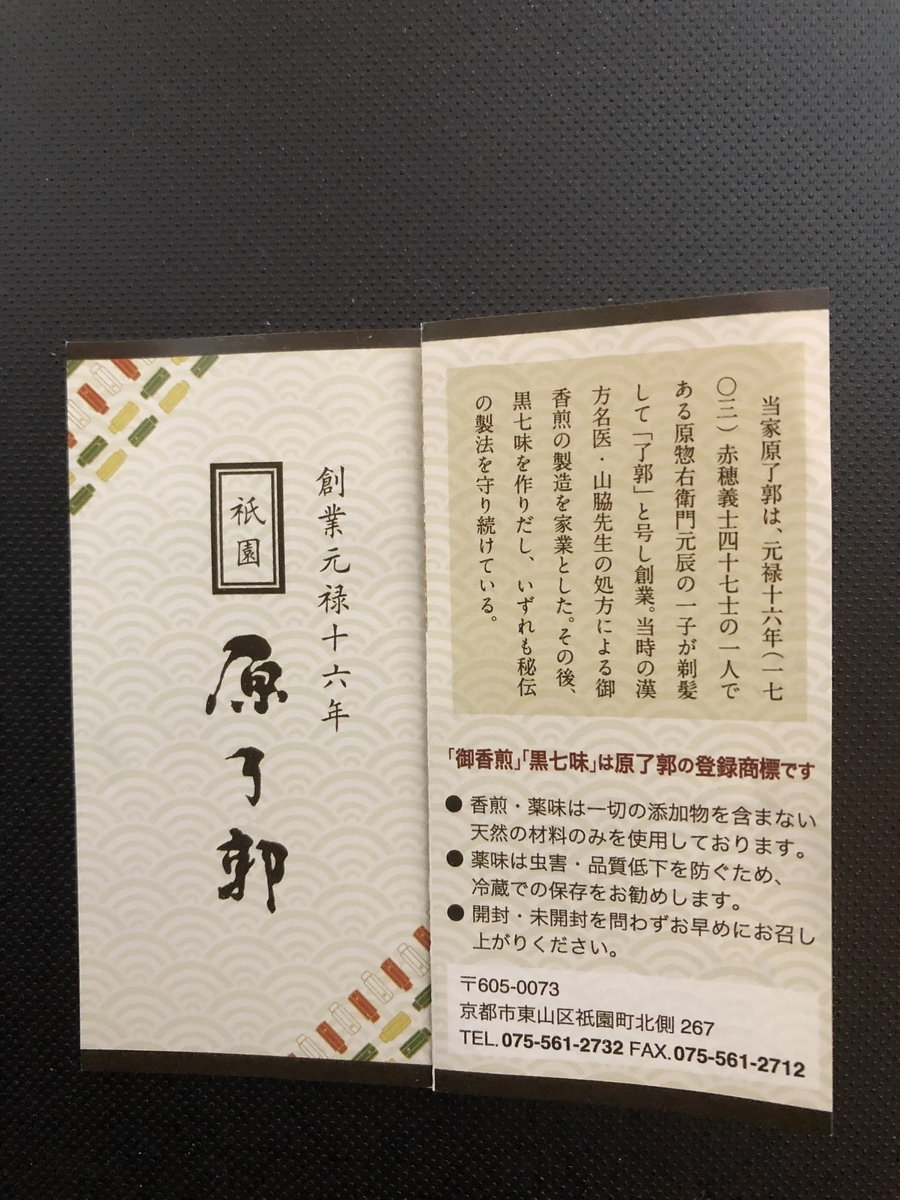 創業元禄十六年
祇園
原了郭
当家原了郭は、元禄十六年（一七
〇三）赤穂義士四十七士の一人で
ある原惣右衛門元辰の一子が剃髪
して「了郭」と号し創業。当時の漢
方名医・山脇先生の処方による御
香煎の製造を家業とした。その後、
黒七味を作りだし、いずれも秘伝
の製法を守り続けている。
「御香煎」「黒七味」は原了郭の登録商標です
●香煎・薬味は一切の添加物を含まない
天然の材料のみを使用しております。
●薬味は虫害・品質低下を防ぐため、
冷蔵での保存をお勧めします。
●開封・未開封を問わずお早めにお召し
上がりください。
〒605-0073
京都市東山区祇園町北側 267
TEL.075-561-2732 FAX.075-561-2712